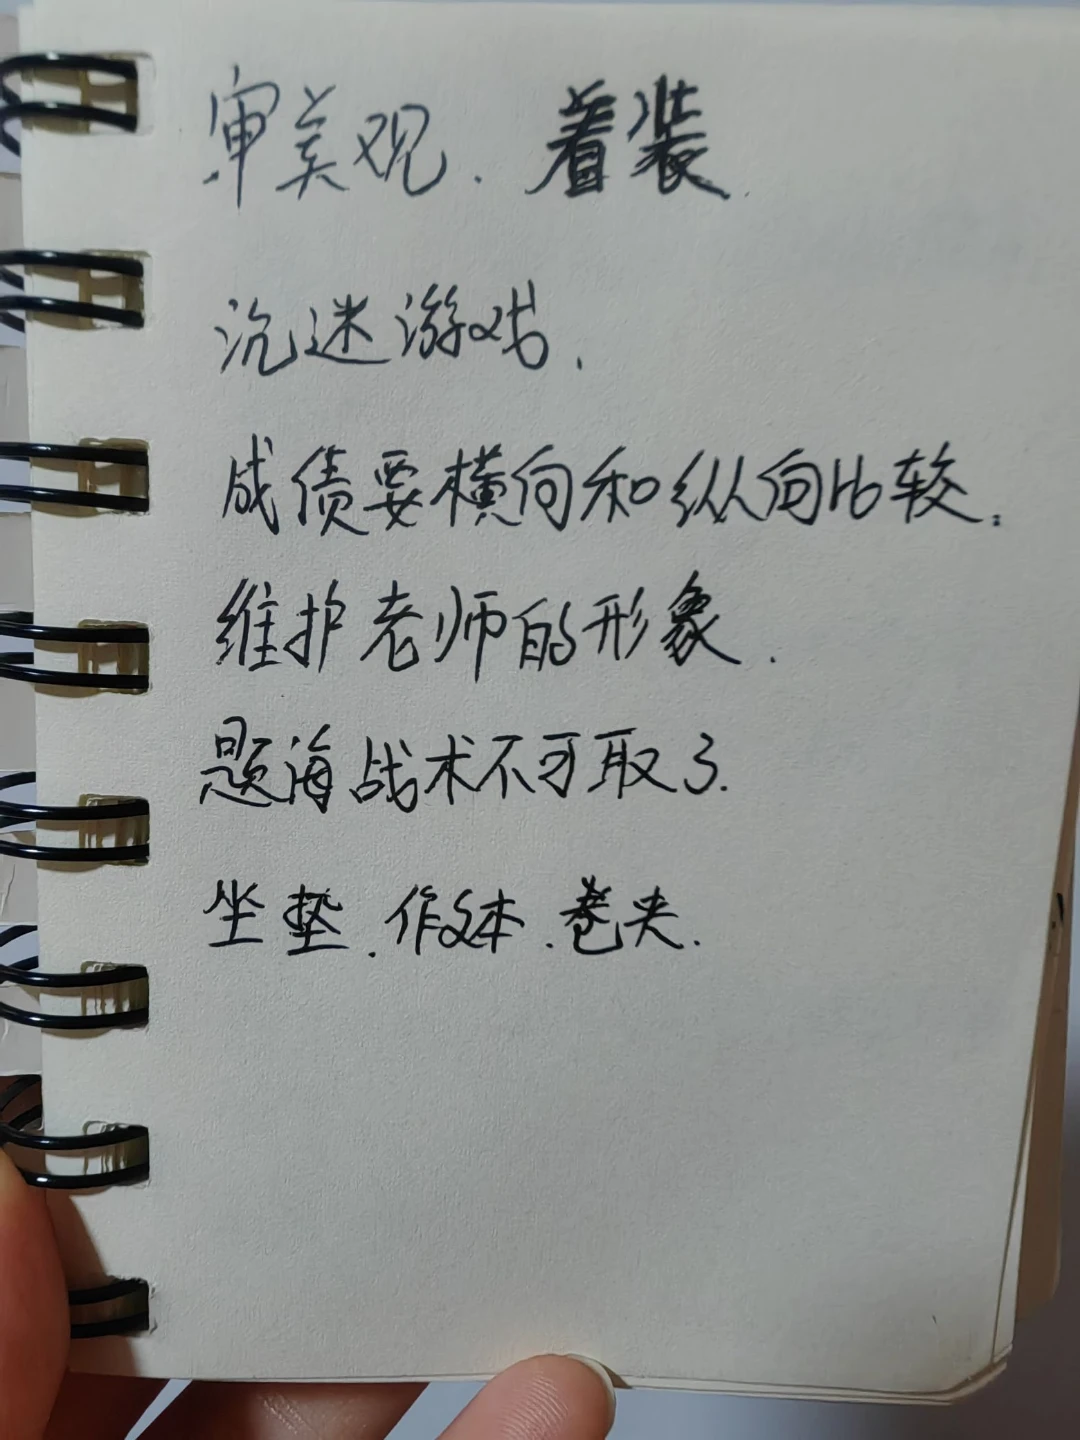 审美观.着装.
沉迷游戏.
成绩要横向和纵向比较.
维护老师的形象.
题海战术不可取了.
坐垫.作文本.卷夹.